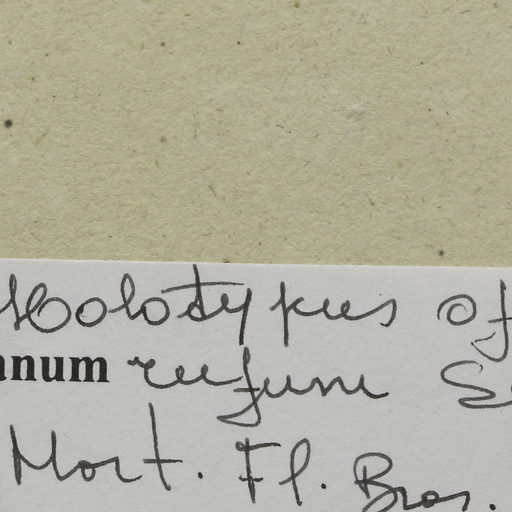 Holotypus of
anum rufum S
Mart. Fl. Bras.